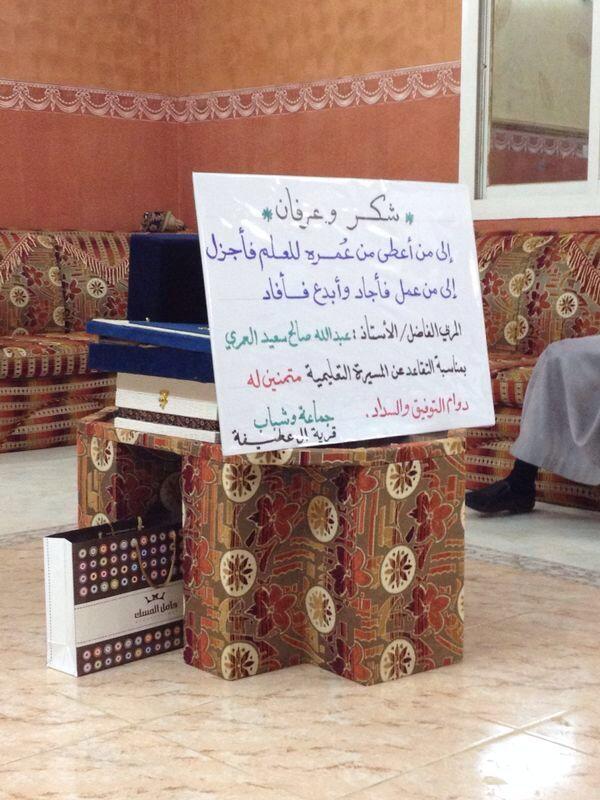 * شكر وعرفان *
إلى من أعطى من عُمره للعلم فأجزل
إلى من عمل فأجاد وأبدع فأفاد
المربي الفاضل/ الأستاذ: عبدالله صالح سعيد العمري
بمناسبة التقاعد عن المسيرة التعليمية متمنين له
دوام التوفيق والسداد.
جماعة وشباب
قرية ال عطيفة
حامل المسك